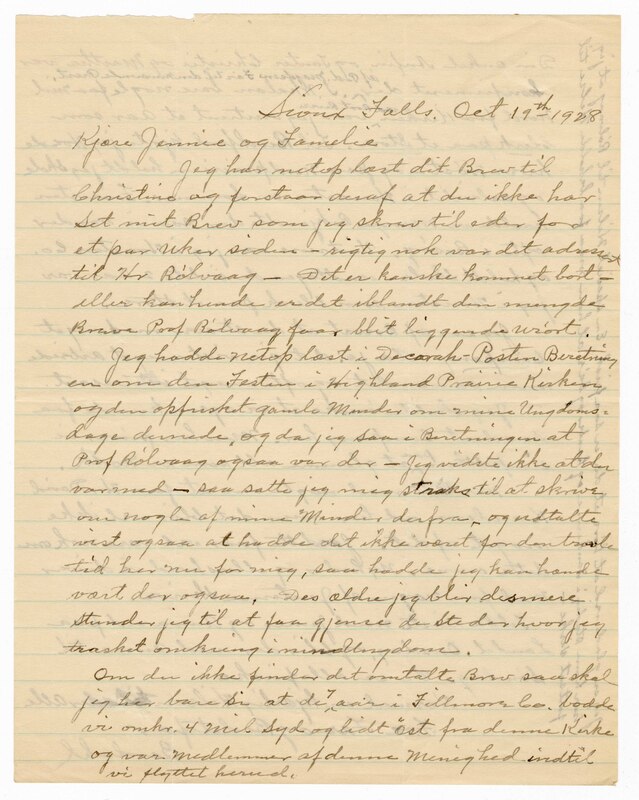 Sioux Falls. Oct 19th 1928
Kjære Jennie og Familie
Jeg har netop læst dit Brev til
Christine og forstaar deraf at du ikke har
Set mit Brev som jeg skrev til eder for
et par Uker siden – rigtig nok var det adressert
til Hr Rölvaag – Det er kanske kommet bort –
eller kanhende er det iblandt den mengde
Breve Prof Rölvaag faar blit liggende urört.
Jeg hadde netop læst i Decorah-Posten Beretning
en om den Festen i Highland Prairie Kirken
og den opfrisket gamle Minder om mine Ungdoms=
dage dernede, og da jeg saa i Beretningen at
Prof Rölvaag ogsaa var der – Jeg vidste ikke at du
var med – saa satte jeg mig straks til at skrive
om nogle af mine Minder derfra, og udtalte
vist ogsaa at hadde det ikke været for den travle
tid her nu for meg, saa hadde jeg kanhænde
vært der ogsaa. Des ældre jeg blir des mere
stunder jeg til at faa gjense de steder hvor jeg
trasket omkring i min Ungdom.
Om du ikke finder det omtalte Brev saa skal
jeg her bare si at de 7 aar i Fillmore Co. bodde
vi omkr. 4 Mil Syd og lidt Öst fra denne Kirke
og var Medlemmer af denne Menighed indtil
vi flyttet herud.